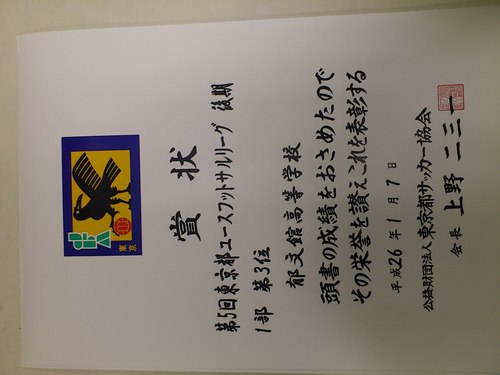 東京
賞状
第5回東京都ユースフットサルリーグ 後期
1部 第3位
郁文館高等学校
頭書の成績をおさめたので
その栄誉を讃えこれを表彰する
平成26年1月7日
公益財団法人東京都サッカー協会
会長 上野 二三一